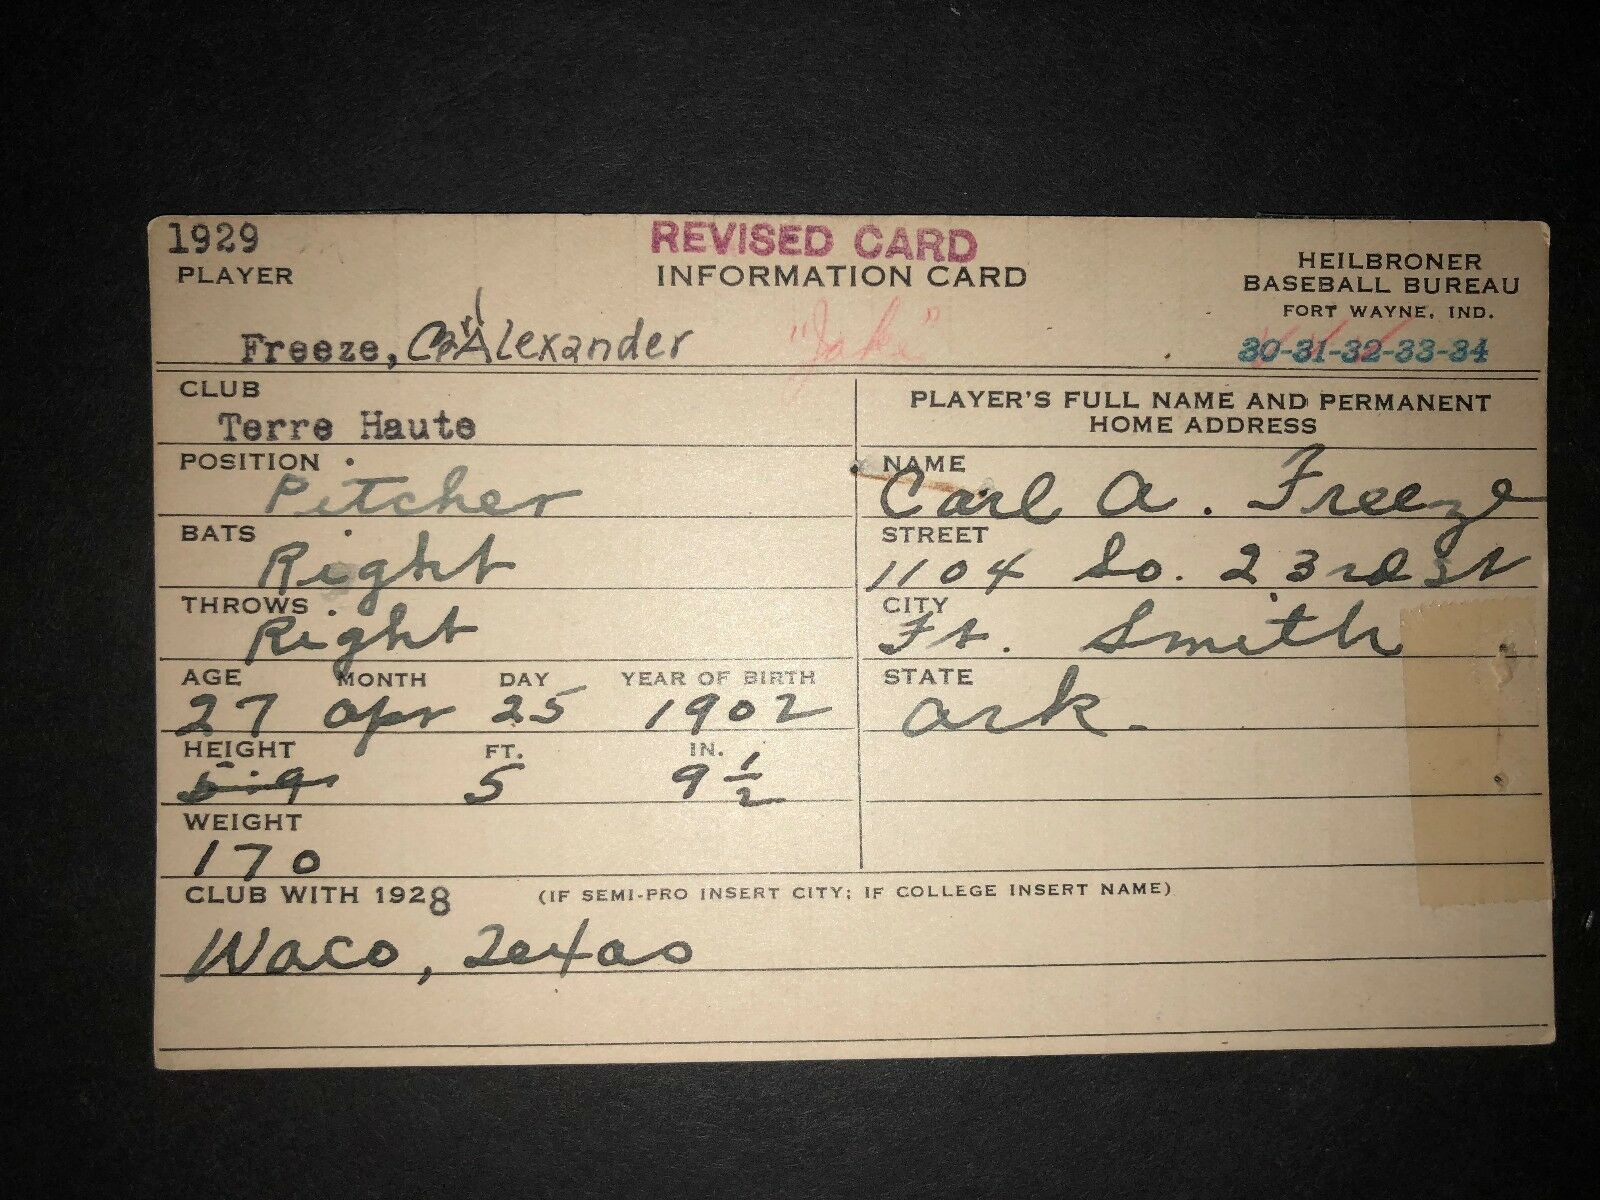 1929
REVISED CARD
PLAYER
INFORMATION CARD
HEILBRONER
BASEBALL BUREAU
FORT WAYNE, IND.
Freeze, Carl Alexander "Jake"
30-31-32-33-34
CLUB
Terre Haute
POSITION
Pitcher
BATS
Right
THROWS
Right
AGE MONTH DAY YEAR OF BIRTH
27 Apr 25 1902
HEIGHT FT. IN.
5-9 5 9 1/2
WEIGHT
170
PLAYER'S FULL NAME AND PERMANENT
HOME ADDRESS
NAME
Carl A. Freeze
STREET
1104 So. 23rd St
CITY
Ft. Smith
STATE
Ark.
CLUB WITH 1928 (IF SEMI-PRO INSERT CITY; IF COLLEGE INSERT NAME)
Waco, Texas